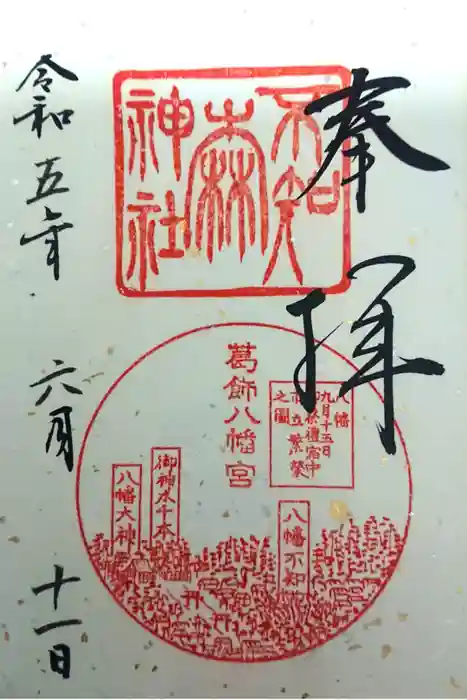 奉拝
不知八
森
神社
葛飾八幡宮
八幡
九月十五日
御祭禮宿中
市立繁榮
之圖
御神木千本
八幡大神
八幡不知
令和五年 六月 十一日